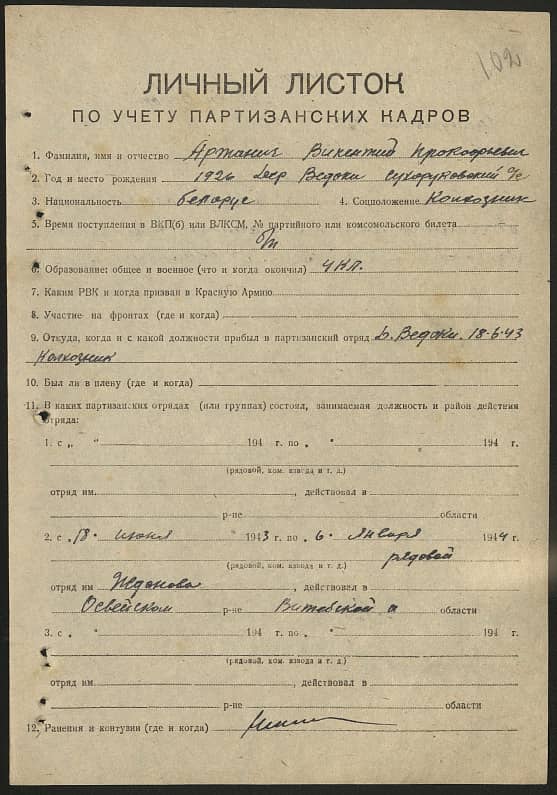 102
ЛИЧНЫЙ ЛИСТОК
ПО УЧЕТУ ПАРТИЗАНСКИХ КАДРОВ
1. Фамилия, имя и отчество Прокофьевич
2. Год и место рождения 1926 дер Ведоки Сухоруковский с/с
3. Национальность беларус 4. Соцположение Колхозник
5. Время поступления в ВКП(б) или ВЛКСМ, № партийного или комсомольского билета
б/п
6. Образование: общее и военное (что и когда окончил) 4 кл.
7. Каким РВК и когда призван в Красную Армию
8. Участие на фронтах (где и когда)
9. Откуда, когда и с какой должности прибыл в партизанский отряд д. Ведоки. 18-6-43
Колхозник
10. Был ли в плену (где и когда)
11. В каких партизанских отрядах (или группах) состоял, занимаемая должность и район действия
отряда:
1. с „ “ 194 г. по „ “ 194 г.
(рядовой, ком. взвода и т. д.)
отряд им. , действовал в
р-не области
2. с „18. июня 1943 г. по „6. января 1944 г.
(рядовой, ком. взвода и т. д.) рядовой
отряд им Жданова , действовал в
Освейском р-не Витебской о области
3. с „ “ 194 г. по „ “ 194 г.
(рядовой, ком. взвода и т. д.)
отряд им. , действовал в
р-не области
12. Ранения и контузии (где и когда)